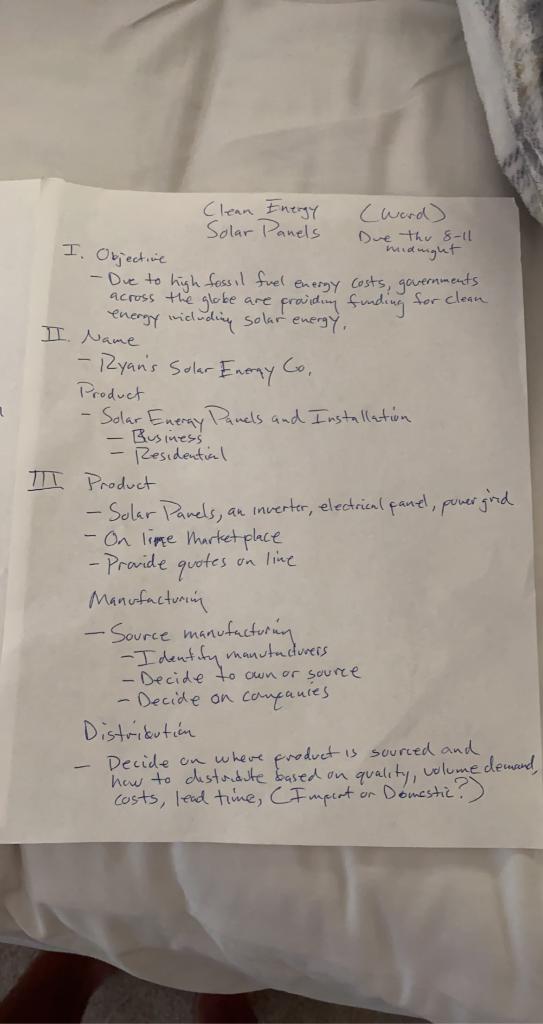 Clean Energy (Word)
Solar Panels Due thu 8-11
midnight
I. Objective
- Due to high fossil fuel energy costs, governments
across the globe are providing funding for clean
energy including solar energy.
II. Name
- Ryan's Solar Energy Co.
Product
- Solar Energy Panels and Installation
- Business
- Residential
III Product
- Solar Panels, an inverter, electrical panel, power grid
- On line Marketplace
- Provide quotes on line
Manufacturing
- Source manufacturing
- Identify manufacturers
- Decide to own or source
- Decide on companies
Distribution
- Decide on where product is sourced and
how to distribute based on quality, volume demand,
costs, lead time, (Import or Domestic?)